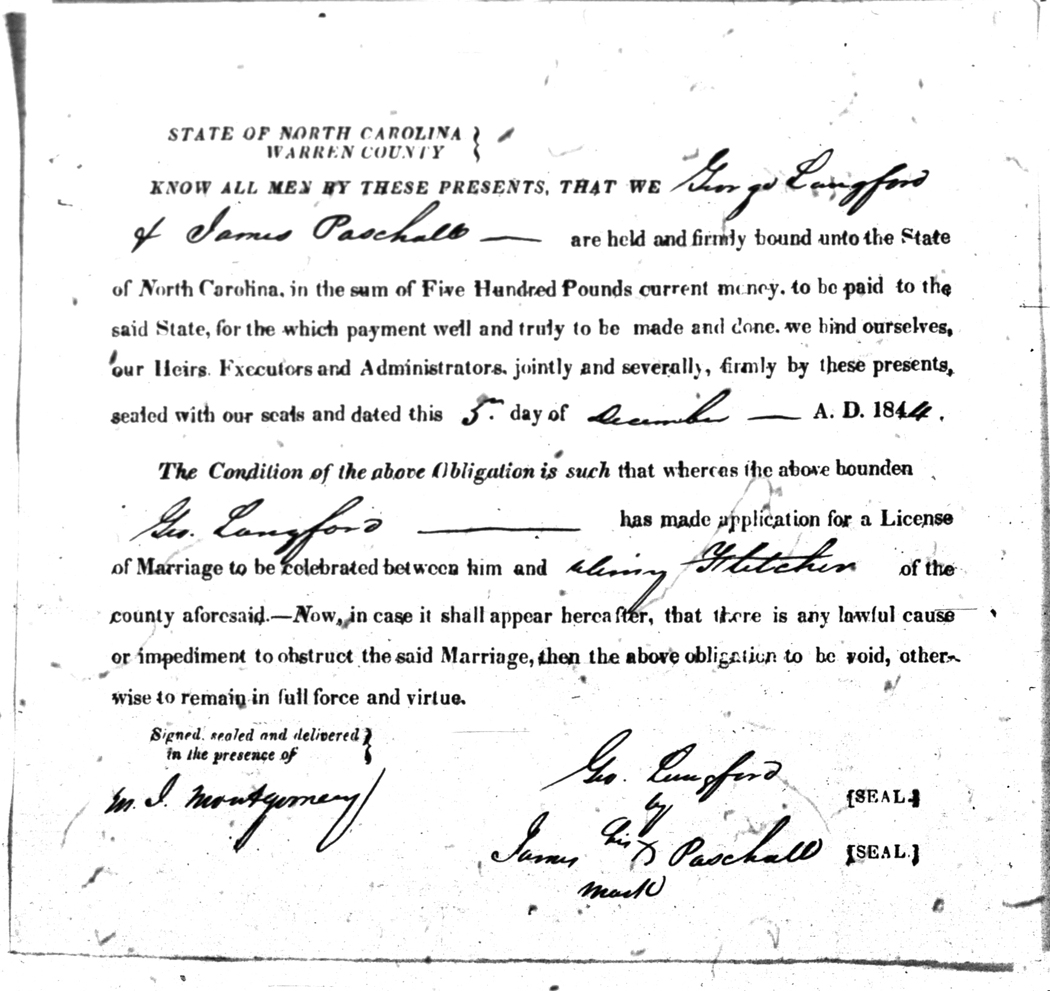 STATE OF NORTH CAROLINA
WARREN COUNTY
KNOW ALL MEN BY THESE PRESENTS, THAT WE George Langford
& James Paschall — are held and firmly bound unto the State
of North Carolina, in the sum of Five Hundred Pounds current money, to be paid to the
said State, for the which payment well and truly to be made and done, we bind ourselves,
our Heirs, Executors and Administrators, jointly and severally, firmly by these presents,
sealed with our seals and dated this 5th day of December — A. D. 1844.
The Condition of the above Obligation is such that whereas the above bounden
Geo. Langford — has made application for a License
of Marriage to be celebrated between him and Fletcher of the
county aforesaid.—Now, in case it shall appear hereafter, that there is any lawful cause
or impediment to obstruct the said Marriage, then the above obligation to be void, other-
wise to remain in full force and virtue.
Signed, sealed and delivered
in the presence of
Geo. Langford [SEAL.]
Montgomery
by
James his x Paschall [SEAL.]
mark